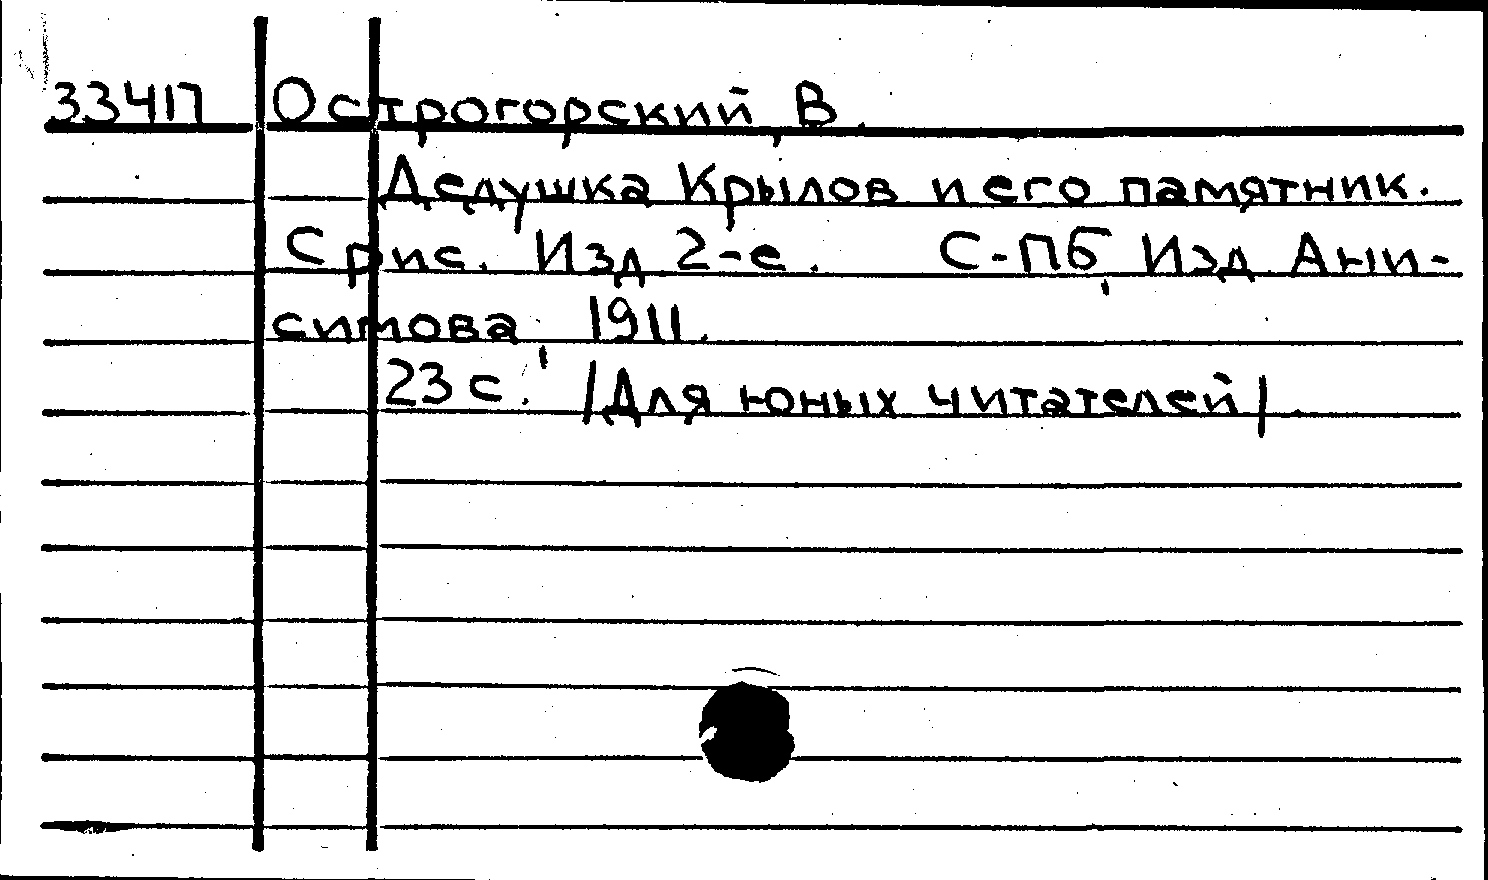 33417 Острогорский, В.
Дедушка Крылов и его памятник.
С рис. Изд 2-е. С-Пб, Изд. Ани-
симова, 1911.
23 с. /Для юных читателей/